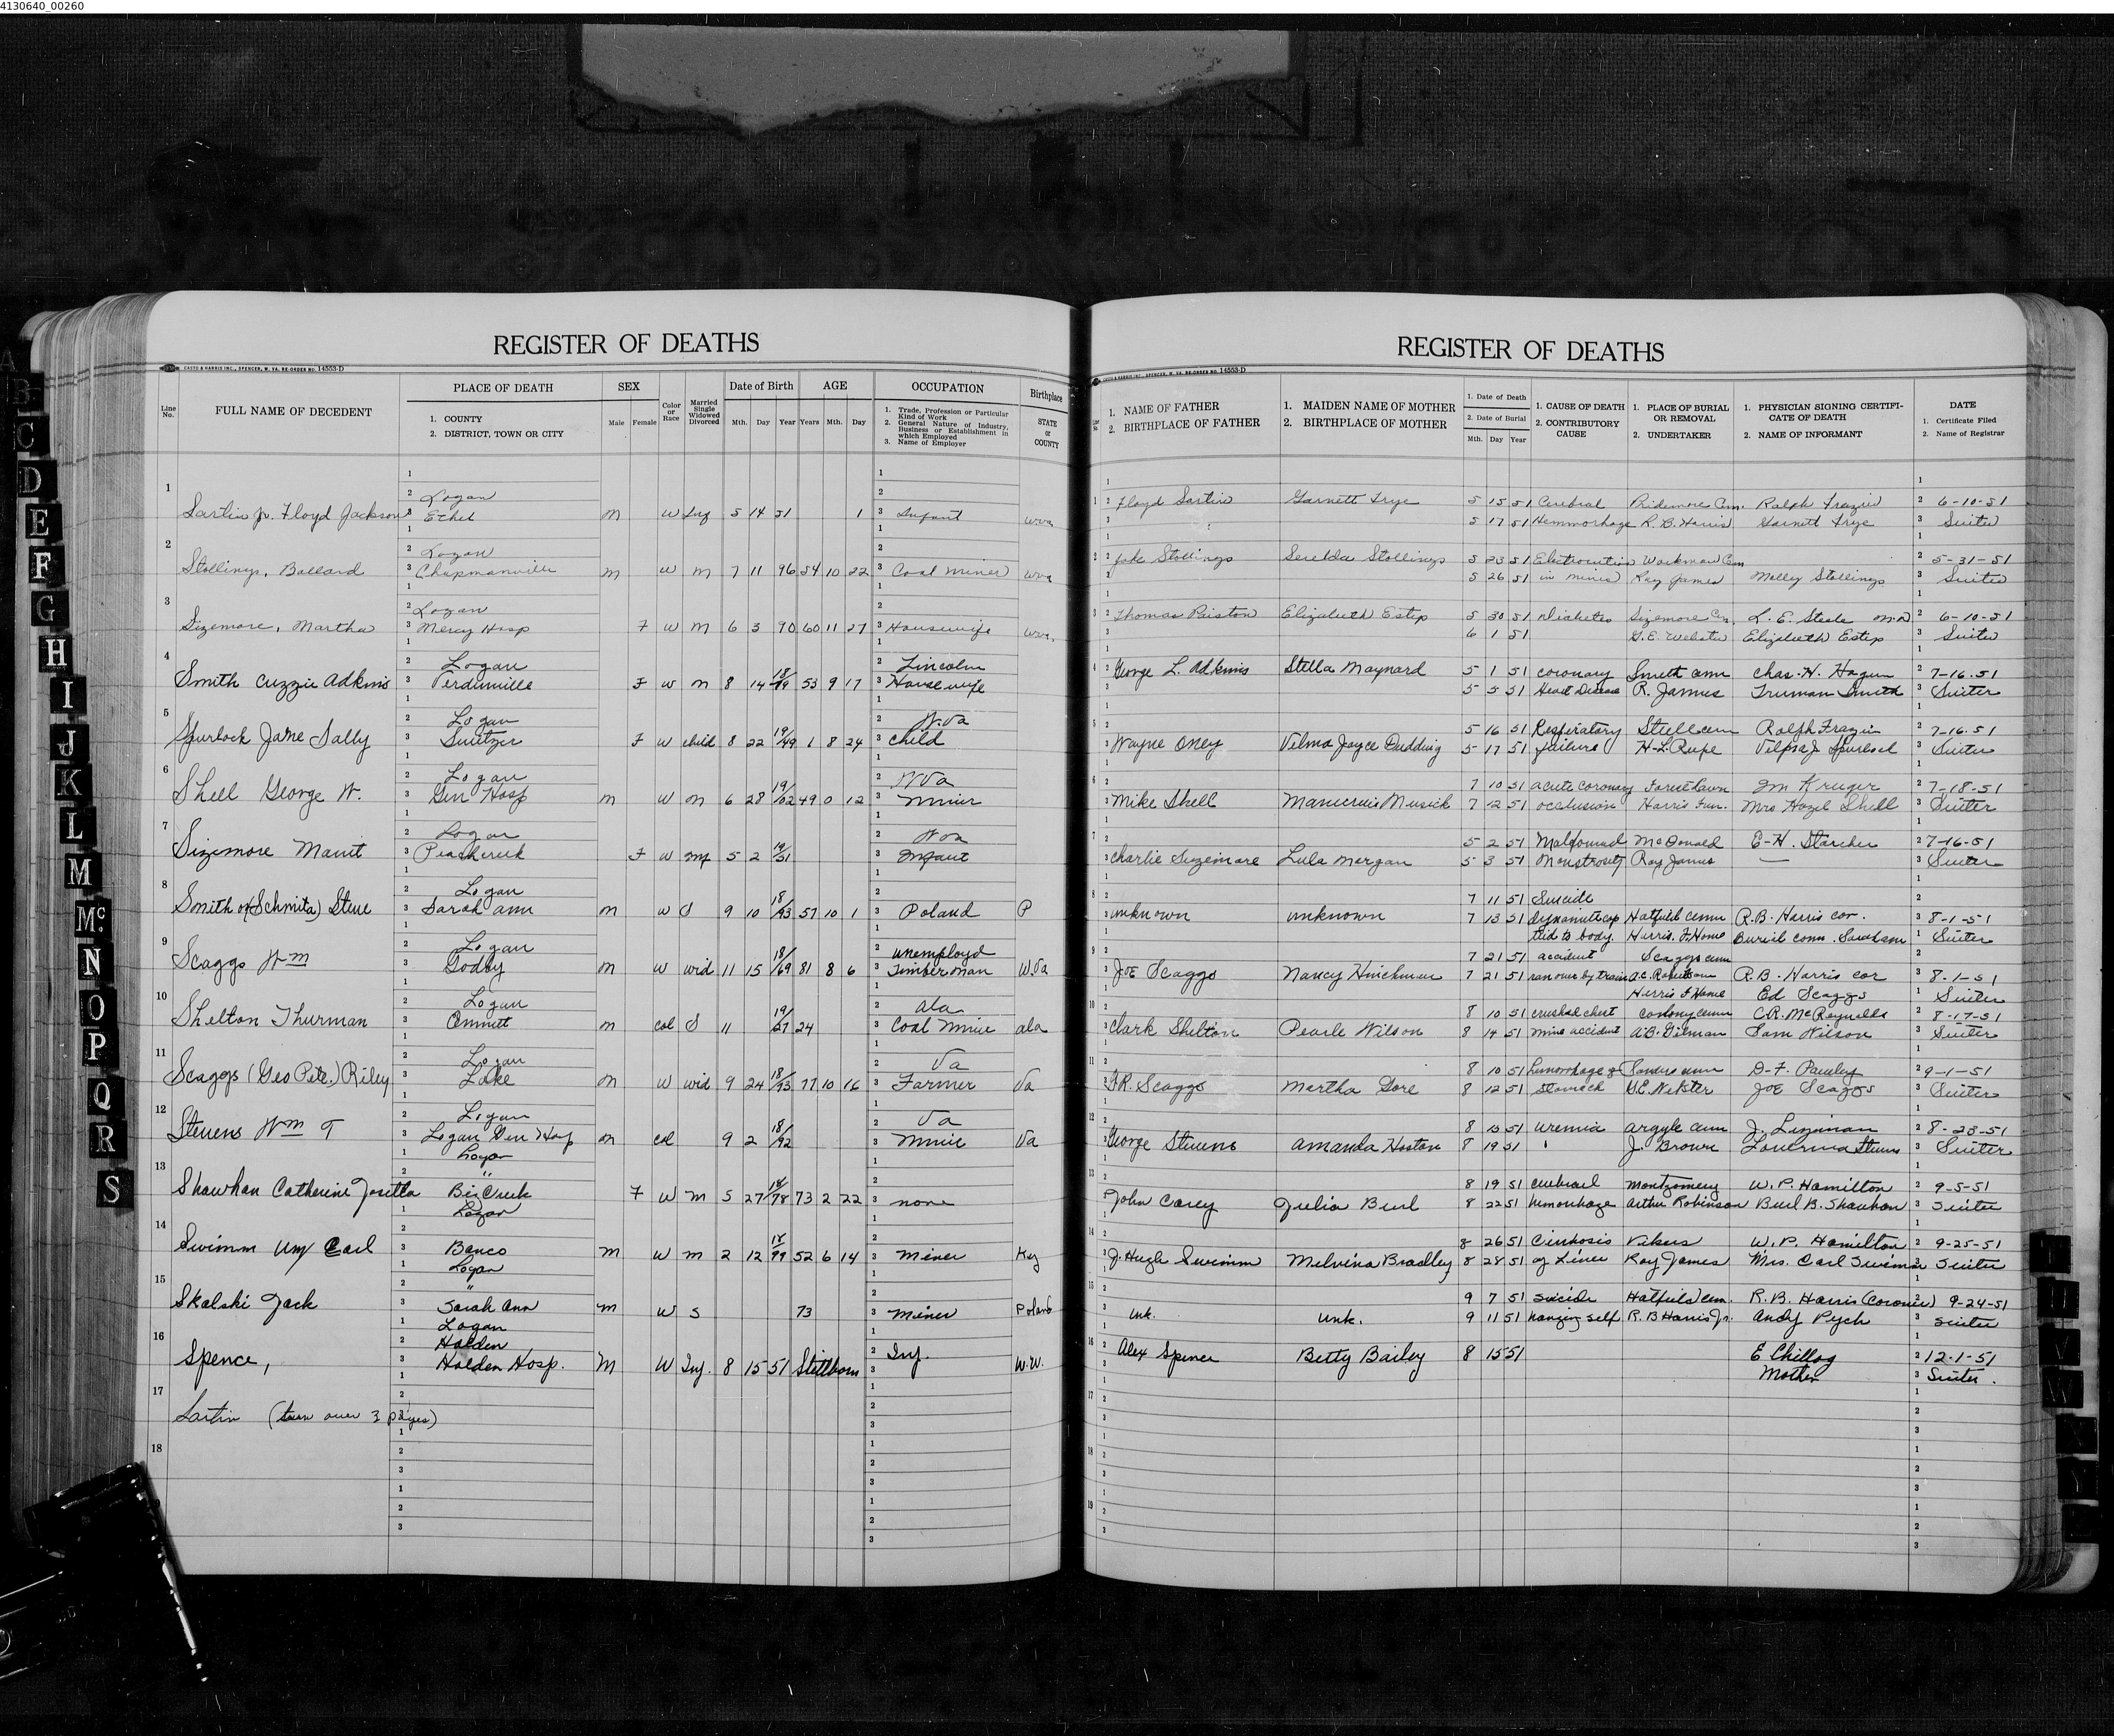 4130640_00260
REGISTER OF DEATHS
CASTO & HARRIS INC., SPENCER, W. VA. RE-ORDER NO. 14553-D
Line No.
FULL NAME OF DECEDENT
PLACE OF DEATH
1. COUNTY
2. DISTRICT, TOWN OR CITY
SEX
Male Female
Color or Race
Married Single Widowed Divorced
Date of Birth
Mth. Day Year
AGE
Years Mth. Day
OCCUPATION
1. Trade, Profession or Particular Kind of Work
2. General Nature of Industry, Business or Establishment in which Employed
3. Name of Employer
Birthplace
STATE or COUNTY
1 Sartin Jr. Floyd Jackson Logan Ethel M W Inf 5 14 51 1 Infant W Va
2 Stollings, Ballard Logan Chapmanville M W M 7 11 96 54 10 22 Coal Miner W Va
3 Sizemore, Martha Logan Mercy Hosp F W M 6 3 90 60 11 27 Housewife W Va.
4 Smith Cuzzie Adkins Logan Verdunville F W M 8 14 53 9 17 Lincoln Housewife
5 Spurlock Jane Sally Logan Switzer F W child 8 22 19/49 1 8 24 W. Va child
6 Shell George W. Logan Gen Hosp M W M 6 28 19/02 49 0 12 W Va Miner
7 Sizemore Logan Peachcreek F W Inf 5 2 19/51 W Va Infant
8 Smith or (Schmita) Steve Logan Sarah Ann M W S 9 10 18/93 57 10 1 Poland P
9 Scaggs Wm Logan Godby M W wid 11 15 18/69 81 8 6 unemployd Timberman W Va
10 Shelton Thurman Logan Ommett M col S 11 19/27 24 Ala Coal Miner Ala
11 Scaggs (Geo Pete.) Riley Logan Lake M W wid 9 24 18/73 77 10 16 Va Farmer Va
12 Stevens Wm T Logan Logan Gen Hosp M col 9 2 18/92 Va Miner Va
13 Shawhan Catherine Logan " Big Creek F W M 5 27 18/78 73 2 22 none
14 Swimm Wm Earl Logan Banco M W M 2 12 18/99 52 6 14 Miner Ky
15 Skalski Jack Logan " Sarah Ann M W S 73 Miner Poland
16 Spence, Logan Holden Holden Hosp. M W Inf. 8 15 51 Stillborn Inf. W.W.
17 Sartin (turn over 3 pages)
18
REGISTER OF DEATHS
CASTO & HARRIS INC., SPENCER, W. VA. RE-ORDER NO. 14553-D
1. NAME OF FATHER
2. BIRTHPLACE OF FATHER
1. MAIDEN NAME OF MOTHER
2. BIRTHPLACE OF MOTHER
1. Date of Death
2. Date of Burial
Mth. Day Year
1. CAUSE OF DEATH
2. CONTRIBUTORY CAUSE
1. PLACE OF BURIAL OR REMOVAL
2. UNDERTAKER
1. PHYSICIAN SIGNING CERTIFICATE OF DEATH
2. NAME OF INFORMANT
DATE
1. Certificate Filed
2. Name of Registrar
1 Floyd Sartin Garnett Frye 5 15 51 Cerebral Pridemore Cem. Ralph Frazier 6-10-51
5 17 51 Hemmorhage R. B. Harris Garnett Frye Suiter
2 Jake Stollings Serelda Stollings 5 23 51 Eletrocution Workman Cem 5-31-51
5 26 51 in mines Ray James Molley Stollings Suiter
3 Thomas Paiston Elizabeth Estep 5 30 51 Diabetes Sizemore Cem, L. E. Steele M.D 6-10-51
6 1 51 G. E. Webster Elizabeth Estep Suiter
4 George L. Adkins Stella Maynard 5 1 51 coronary Smith cem Chas. H. Hagen 7-16-51
5 5 51 Heart Disease R. James Truman Smith Suiter
5 5 16 51 Respiratory cem Ralph Frazier 7-16-51
Wayne Oney Velma Jayce Dudding 5 17 51 failure H. L. Rupe Velma J Spurlock Suiter
6 7 10 51 acute coronary Forest Lawn Im Kruger 7-18-51
Mike Shell Musick 7 12 51 occlusion Harris Fun. Mrs Hazel Shell Suiter
7 5 2 51 Malformed McDonald E. H. Starcher 7-16-51
Charlie Sizemore Lula Morgan 5 3 51 Monstrosity Ray James — Suiter
8 7 11 51 Suicide
unknown unknown 7 13 51 Dynamite cap Hatfield cem R. B. Harris cor. 8-1-51
tied to body. Harris. F. Home Burial comm. Suiter
9 7 21 51 accident Scaggs cem
Joe Scaggs Nancy Hinchman 7 21 51 ran over by train R. B. Harris cor 8-1-51
Harris F Home Ed Scaggs Suiter
10 8 10 51 crushed chest colony cem C. R. McReynolds 8-17-51
Clark Shelton Pearle Wilson 8 14 51 mine accident A. B. Gilman Sam Wilson Suiter
11 8 10 51 hemorrhage of Sanders cem D. F. Pauley 9-1-51
F. R. Scaggs Martha Gore 8 12 51 stomach G. E. Webster Joe Scaggs Suiter
12 8 15 51 uremia Argyle cem J. 8-23-51
George Stevens Amanda Hoston 8 19 51 J. Brown Stevens Suiter
13 8 19 51 cerebral Montgomery W. P. Hamilton 9-5-51
John Carey Julia Burl 8 22 51 hemorrhage Arthur Robinson Burl B. Shawhan Suiter
14 8 26 51 Cirrhosis Vikers W. P. Hamilton 9-25-51
J. Hugh Swimm Melvina Bradley 8 28 51 of Liver Ray James Mrs. Carl Swimm Suiter
15 9 7 51 suicide Hatfield cem. R. B. Harris (Coroner) 9-24-51
Unk. Unk. 9 11 51 hanging self R. B Harris Jr. Andy Pych Suiter
16 Alex Spence Betty Bailey 8 15 51 E Chillog 12-1-51
Mother Suiter.
17
18
19
B
C
D
E
F
G
H
I
J
K
L
M
Mc
N
O
P
Q
R
S